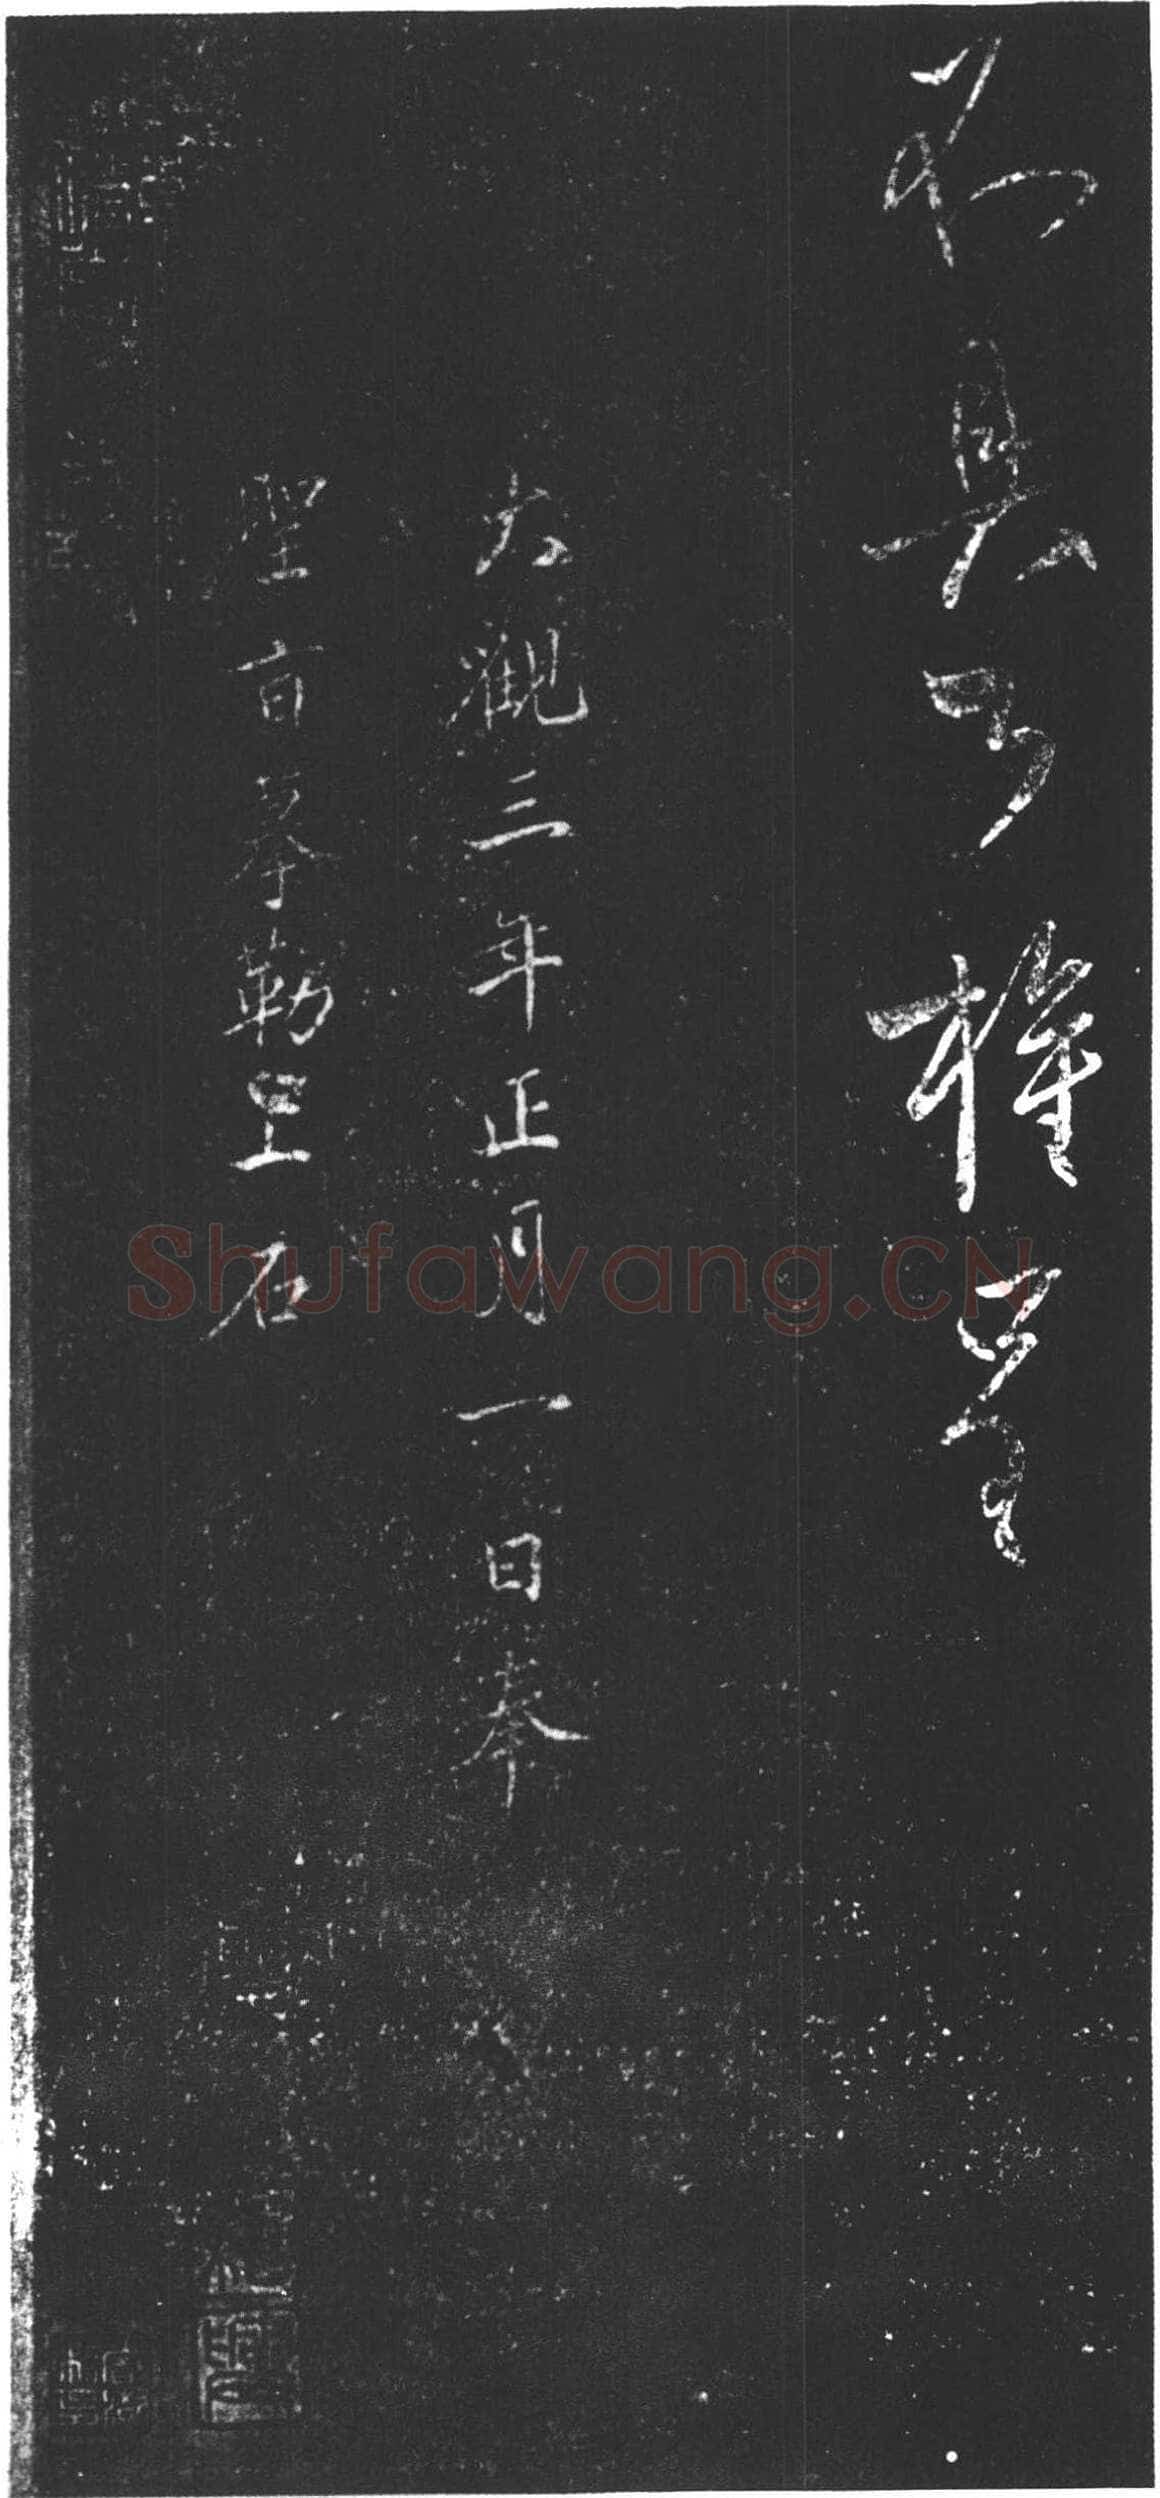 不具公權呈
大觀三年正月一日奉
聖旨摹勒上石
Shufawang.CN